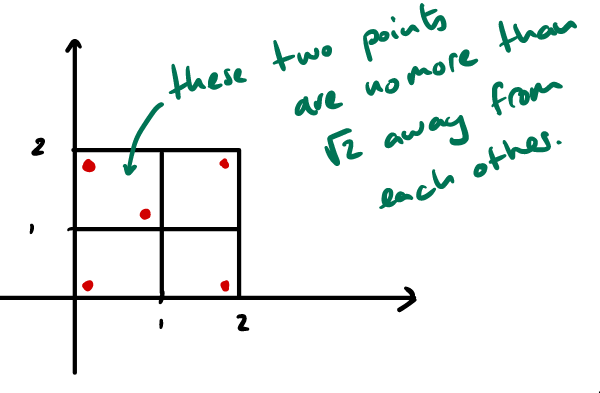 these two points
are no more than
√2 away from
each other.
2
1
1
2